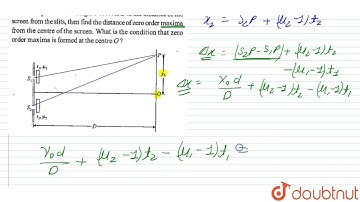 screen from the slits, then find the distance of zero order maxima
from the centre of the screen. What is the condition that zero
order maxima is formed at the centre O ?
x₂ = S₂P + (μ₂-1)t₂
Δx = (S₂P - S₁P) + (μ₂-1)t₂
-(μ₁-1)t₁
Δx = y₀d/D + (μ₂-1)t₂ - (μ₁-1)t₁
P
S₁
S₂
O
D
y₀d/D + (μ₂-1)t₂ - (μ₁-1)t₁ =
doubtnut